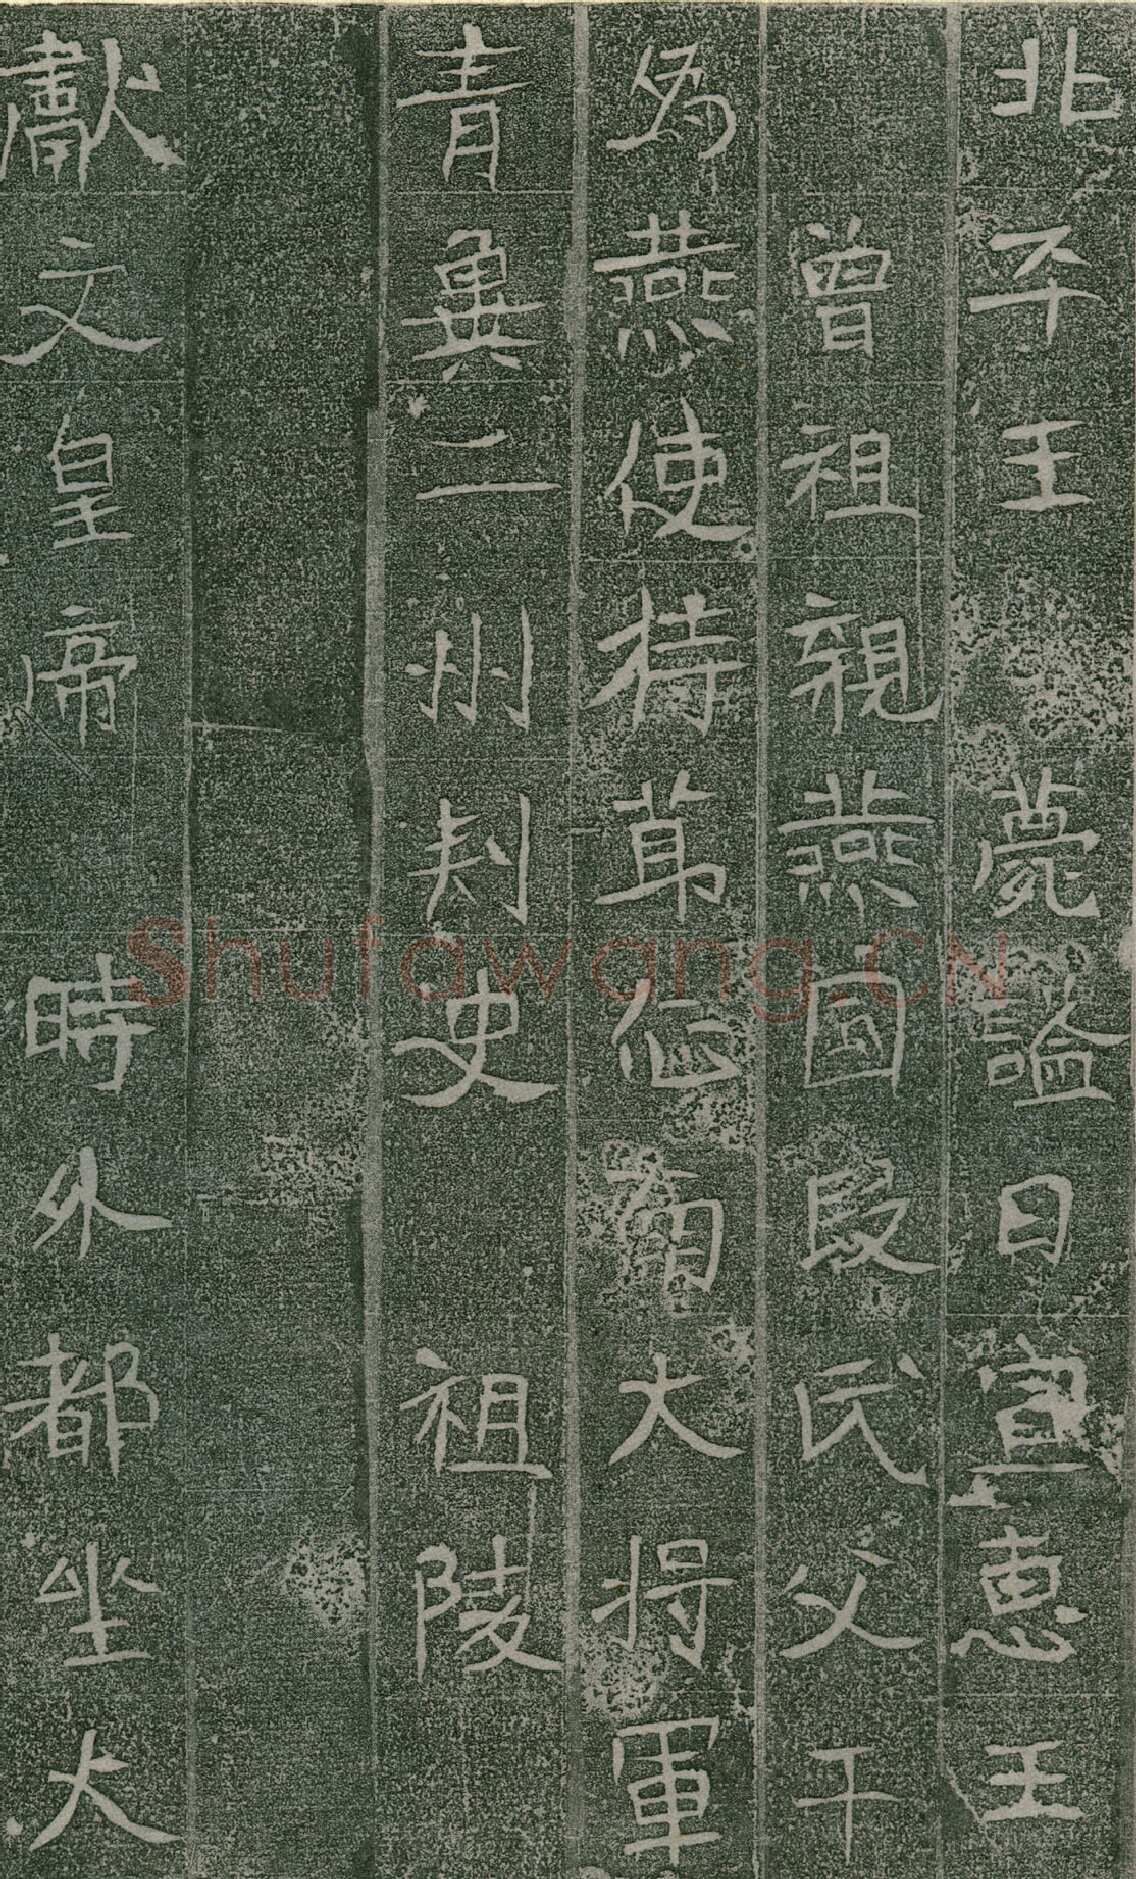 北平王薨謚曰宣惠王
曾祖親燕國段氏父干
為燕使持節征南大將軍
青冀二州刺史 祖陵
獻文皇帝 時外都坐大
Shufawang.CN